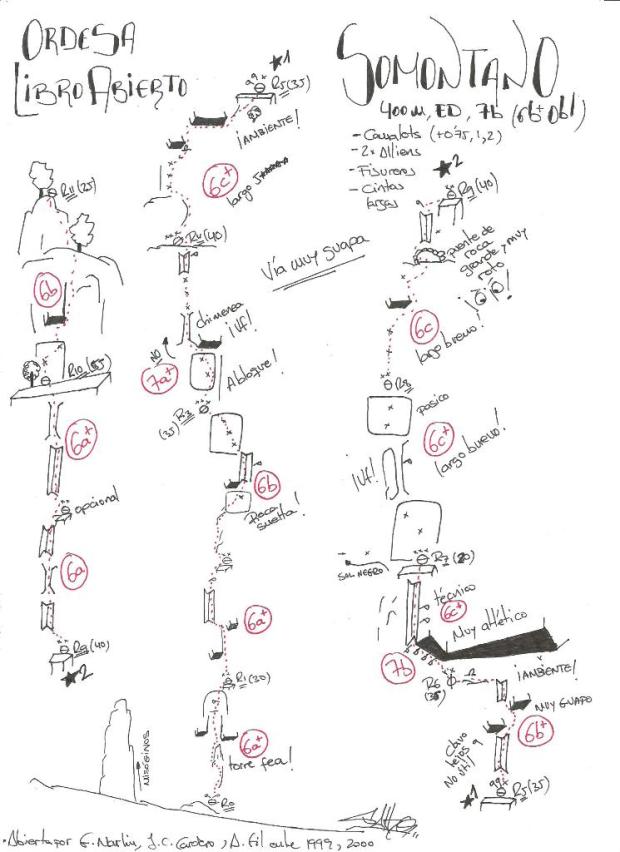 ORDESA
LIBRO ABIERTO
SOMONTANO
400 m, ED, 7b (6b+ obl)
- Camalots (+0.75, 1, 2)
- 2x Alliens
- Fisureros
- Cintas
largas
★1
R5 (35)
¡AMBIENTE!
6c+
largo
R4 (40)
Vía muy guapa
chimenea
¡Uf!
NO
7a+
A bloque!
R3
(35)
6b
Roca
suelta!
6a+
R1 (30)
6a+
torre fea!
R0
R11 (25)
6b
R10
6a+
opcional
6a
R9 (40)
★2
MISÓGINOS
★2
R9 (40)
puente de
roca
grande y muy
roto
6c
largo bueno!
R8
pasico
6c+
largo bueno!
¡Uf!
R7 (20)
técnico
6c+
Muy atlético
7b
R6
(35)
¡AMBIENTE!
MUY GUAPO
6b+
Clavo
lejos
No sti!
★1
R5 (35)
• Abierta por
1999, 2000